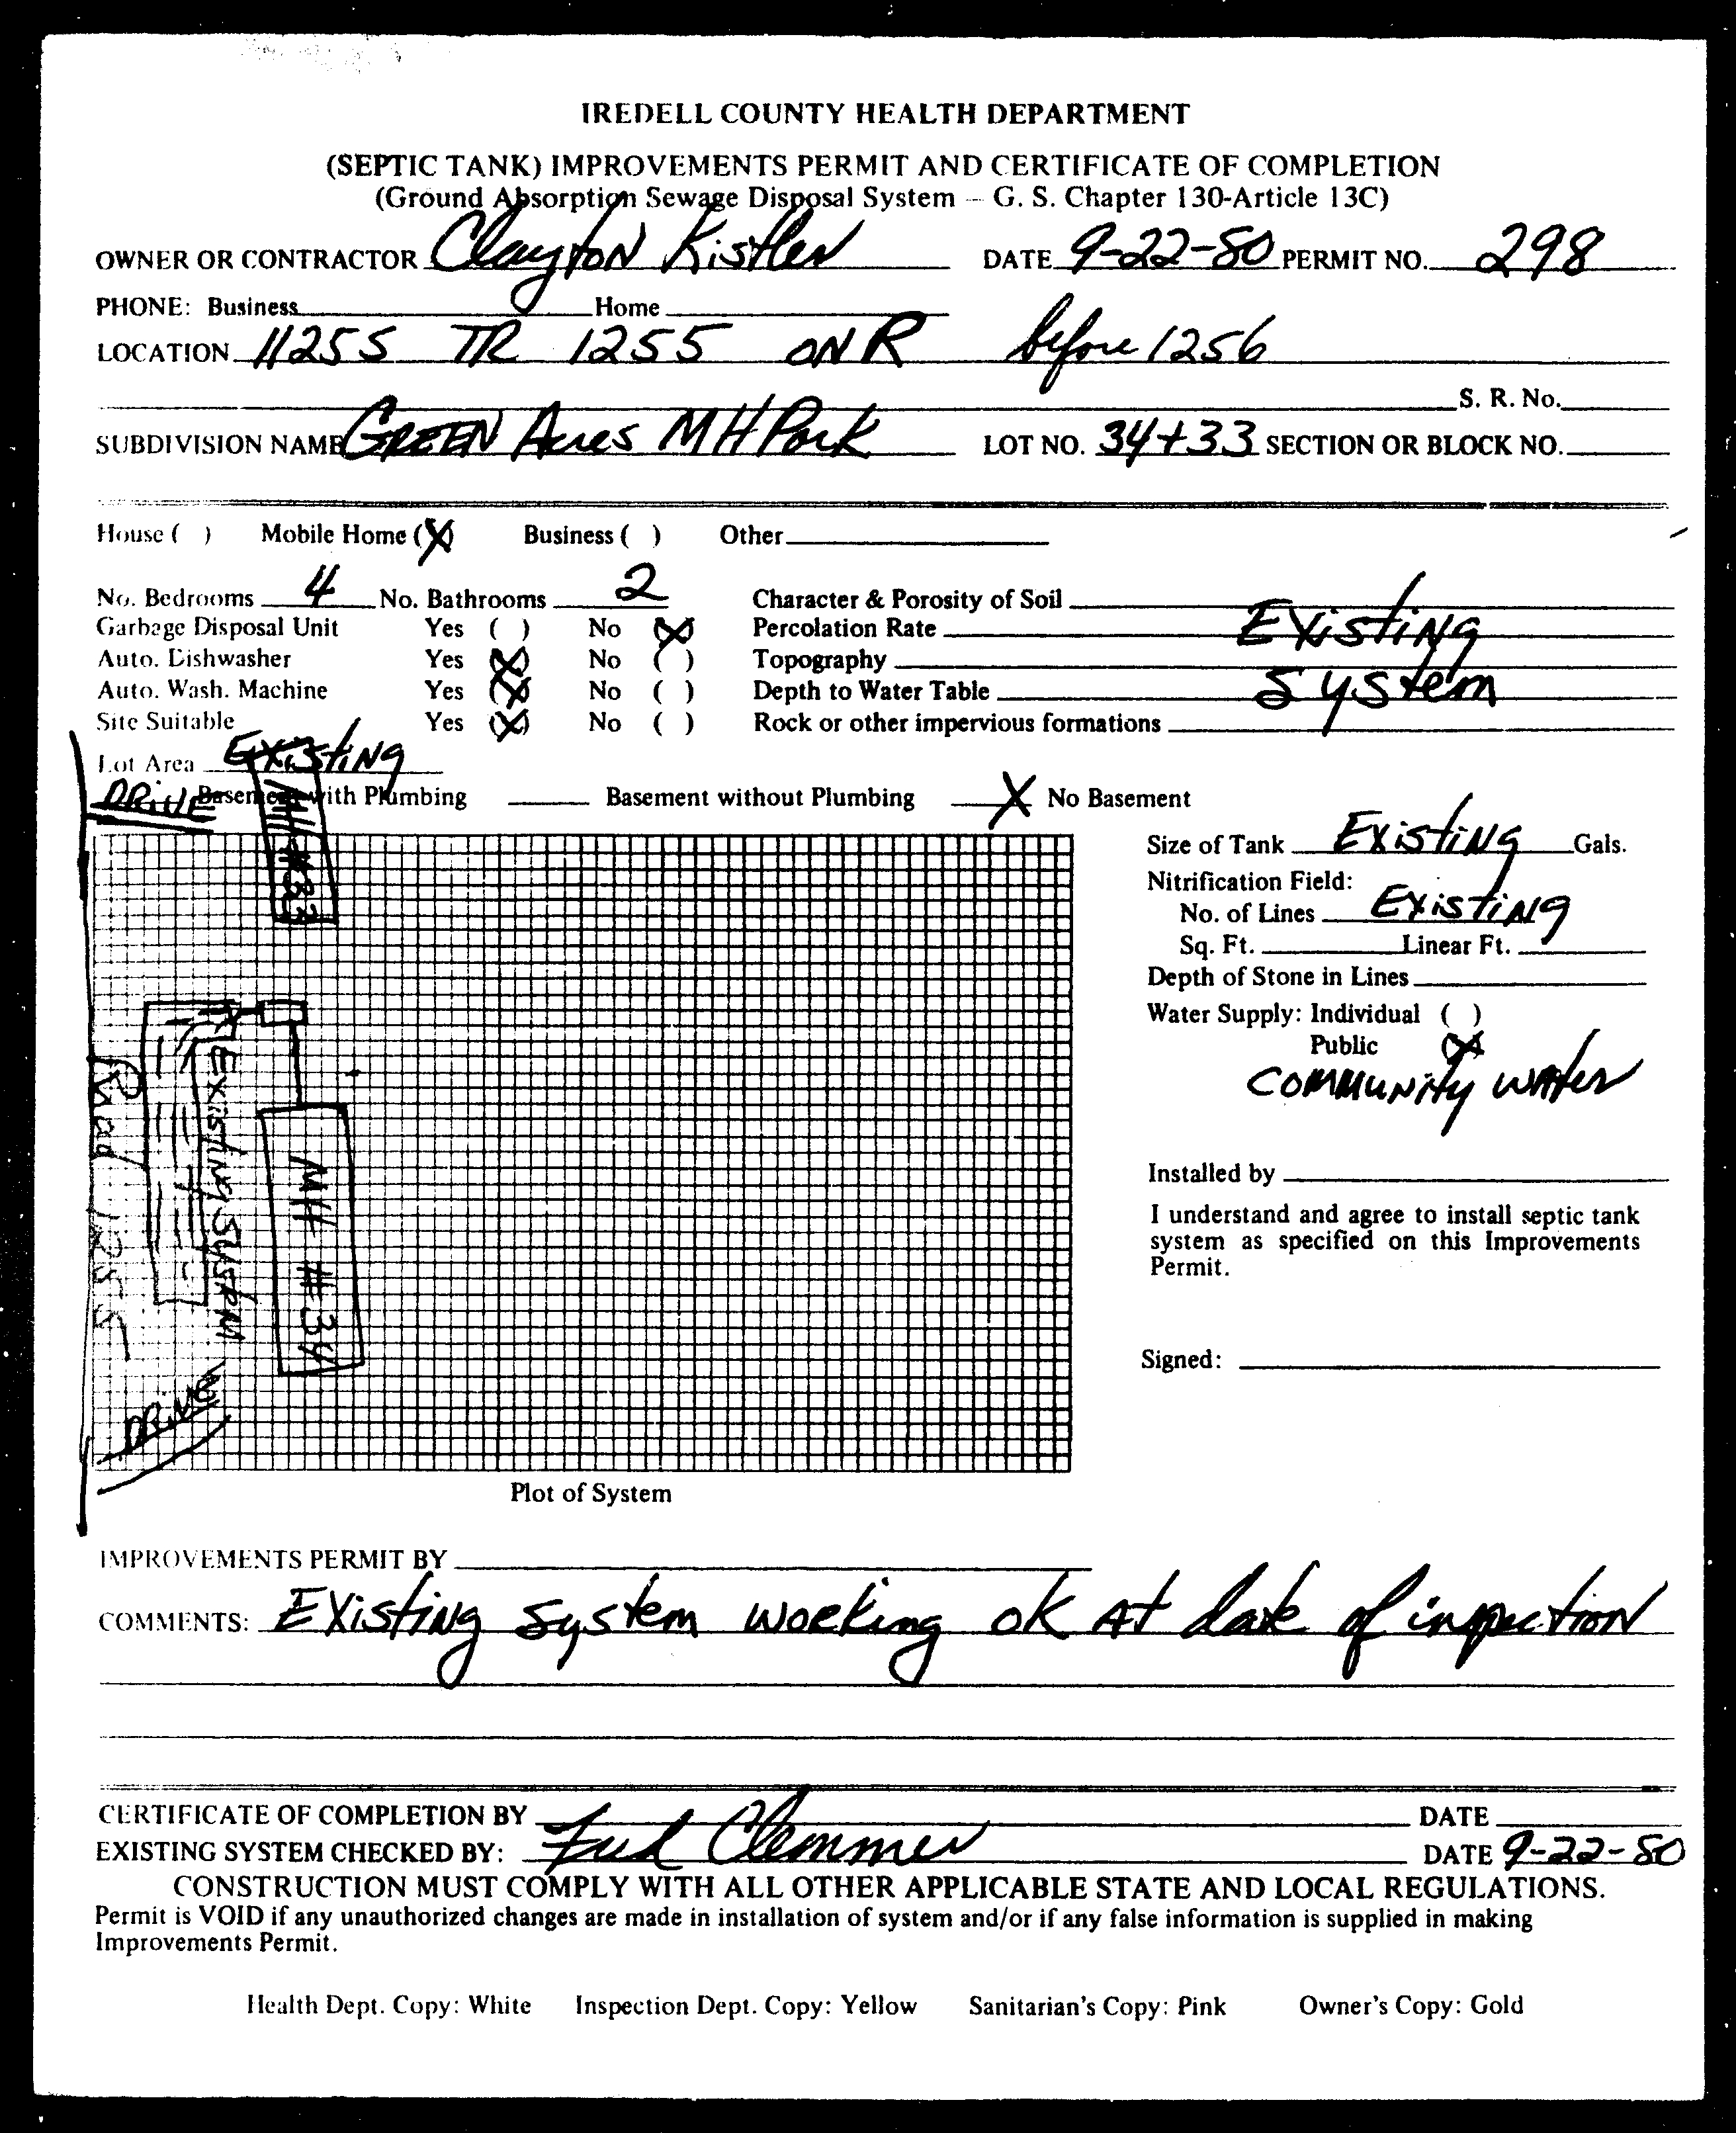 IREDELL COUNTY HEALTH DEPARTMENT
(SEPTIC TANK) IMPROVEMENTS PERMIT AND CERTIFICATE OF COMPLETION
(Ground Absorption Sewage Disposal System – G. S. Chapter 130-Article 13C)
OWNER OR CONTRACTOR Clayton Kistler DATE 9-22-80 PERMIT NO. 298
PHONE: Business Home
LOCATION 1125S TR 1255 ON R before 1256
S. R. No.
SUBDIVISION NAME GREEN Acres MH Park LOT NO. 34+33 SECTION OR BLOCK NO.
House ( ) Mobile Home (X) Business ( ) Other
No. Bedrooms 4 No. Bathrooms 2 Character & Porosity of Soil
Garbage Disposal Unit Yes ( ) No (X) Percolation Rate Existing
Auto. Dishwasher Yes (X) No ( ) Topography
Auto. Wash. Machine Yes (X) No ( ) Depth to Water Table System
Site Suitable Yes (X) No ( ) Rock or other impervious formations
Lot Area Existing
DRIVE Basement with Plumbing Basement without Plumbing X No Basement
MH #33
Size of Tank Existing Gals.
Nitrification Field:
No. of Lines Existing
Sq. Ft. Linear Ft.
Depth of Stone in Lines
Water Supply: Individual ( )
Public (X)
Community Water
Road 1255
Existing System
MH #34
DRIVE
Installed by
I understand and agree to install septic tank
system as specified on this Improvements
Permit.
Signed:
Plot of System
IMPROVEMENTS PERMIT BY
COMMENTS: Existing System working OK At date of inspection
CERTIFICATE OF COMPLETION BY DATE
EXISTING SYSTEM CHECKED BY: Fred Clemmer DATE 9-22-80
CONSTRUCTION MUST COMPLY WITH ALL OTHER APPLICABLE STATE AND LOCAL REGULATIONS.
Permit is VOID if any unauthorized changes are made in installation of system and/or if any false information is supplied in making
Improvements Permit.
Health Dept. Copy: White Inspection Dept. Copy: Yellow Sanitarian's Copy: Pink Owner's Copy: Gold